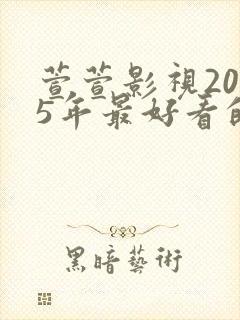 萱萱影視20
5年最好看的
黑暗藝術